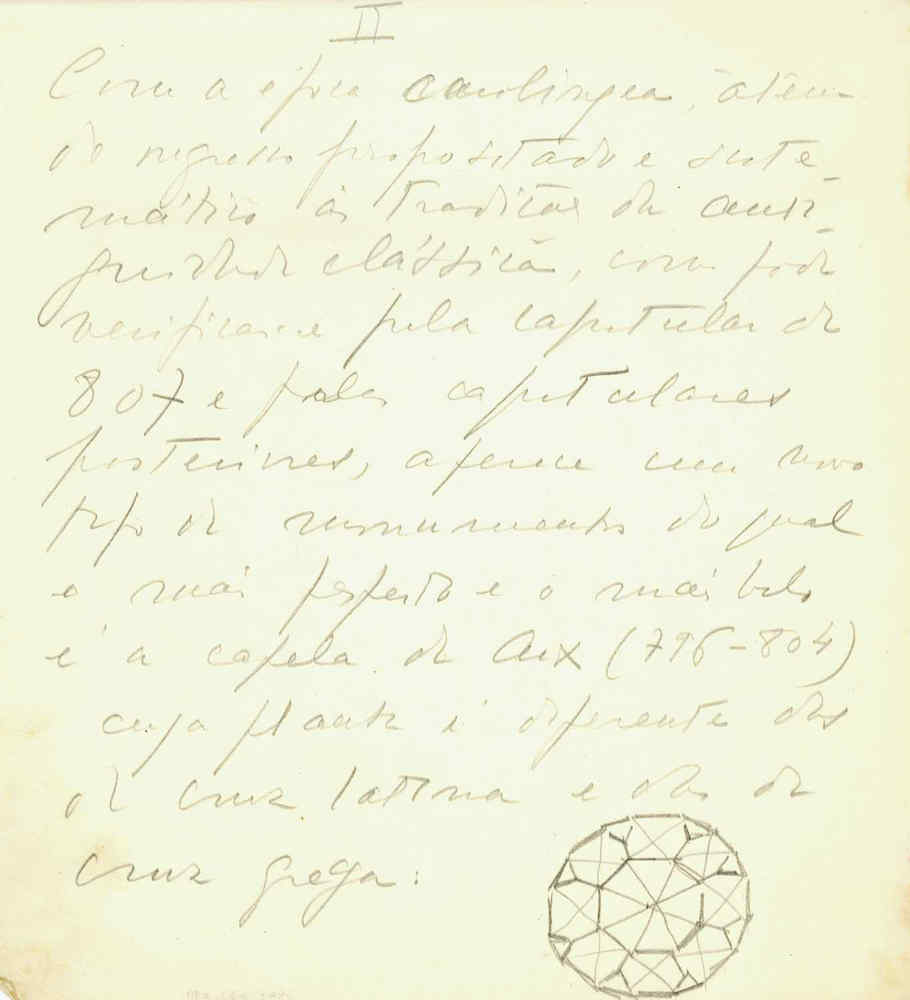 II
Com a época carolíngea, àlém
do regresso propositado e siste-
mático às tradições da anti-
guidade clássica, como pode
verificar-se pela capitular de
807 e pelas capitulares
posteriores, aparece um novo
tipo de monumentos do qual
o mais perfeito e o mais belo
é a capela de Aix (796-804)
cuja planta é diferente das
de cruz latina e das de
cruz grega: